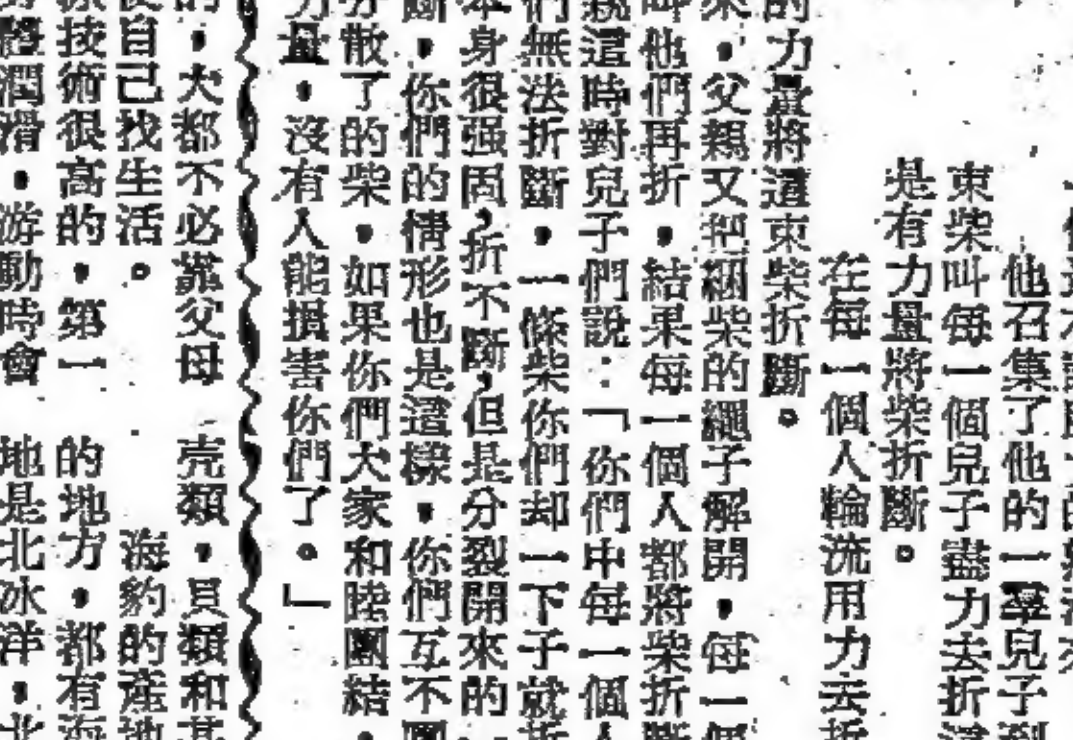 他召集了他的一羣兒子到
束柴叫每一個兒子盡力去折這
是有力量將柴折斷。
在每一個人輪流用力去折
的力量將這束柴折斷。
來，父親又把綑柴的繩子解開，每一個
叫他們再折，結果每一個人都將柴折斷
親這時對兒子們說：「你們中每一個人
們無法折斷，一條柴你們却一下子就折
本身很强固，折不斷，但是分裂開來的
斷，你們的情形也是這樣，你們互不團
分散了的柴，如果你們大家和睦團結，
力量，沒有人能損害你們了。」
的，大都不必靠父母
自己找生活。
技術很高的，第一
體潤滑，游動時會
壳類，貝類和其
海豹的產地
的地方，都有海
地是北冰洋，北